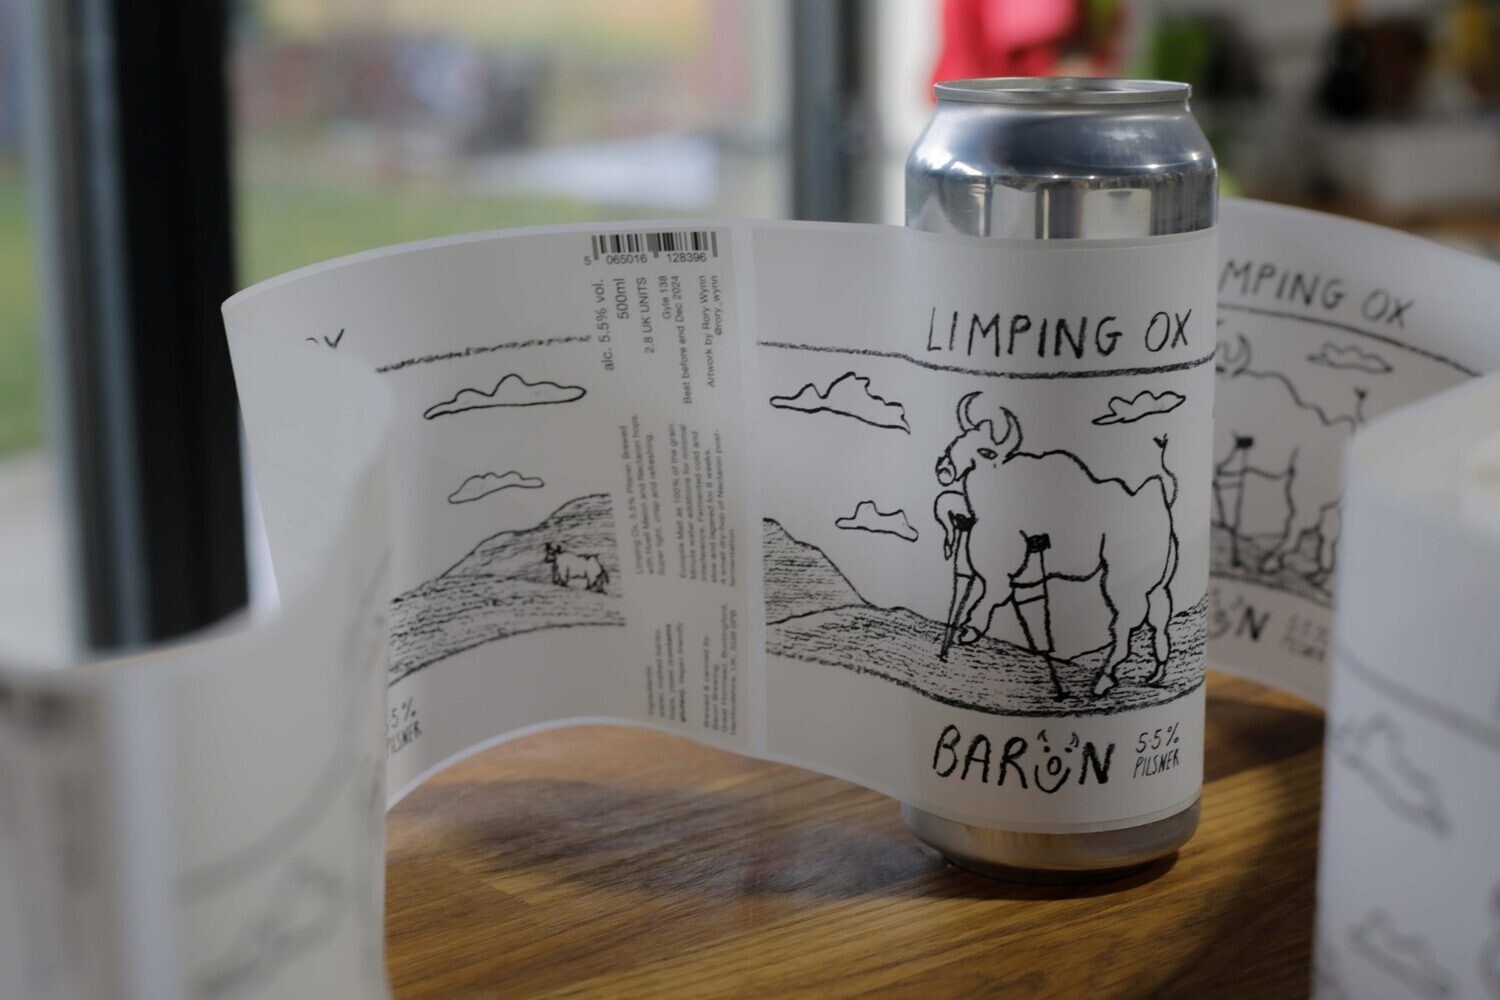 5 065016 128396
alc. 5.5% vol.
500ml
2.8 UK UNITS
Gyle 138
Best before end Dec 2024
Artwork by Rory Wynn
@rory_wynn
Limping Ox, 5.5% Pilsner. Brewed
with Huell Melon and Nectaron hops.
Super light, crisp and refreshing.
Europils Malt as 100% of the grain.
Minute water additions for minimal
interference. Fermented cold and
slow and lagered for 6 weeks.
A small dry-hop of Nectaron post-
fermentation.
Ingredients
Brewed & canned by
Baron Brewing,
Great Hormead, Buntingford,
Hertfordshire, UK, SG9 0PB
5.5%
PILSNER
LIMPING OX
BARON
5.5%
PILSNER
MPING OX
ON
5.5%